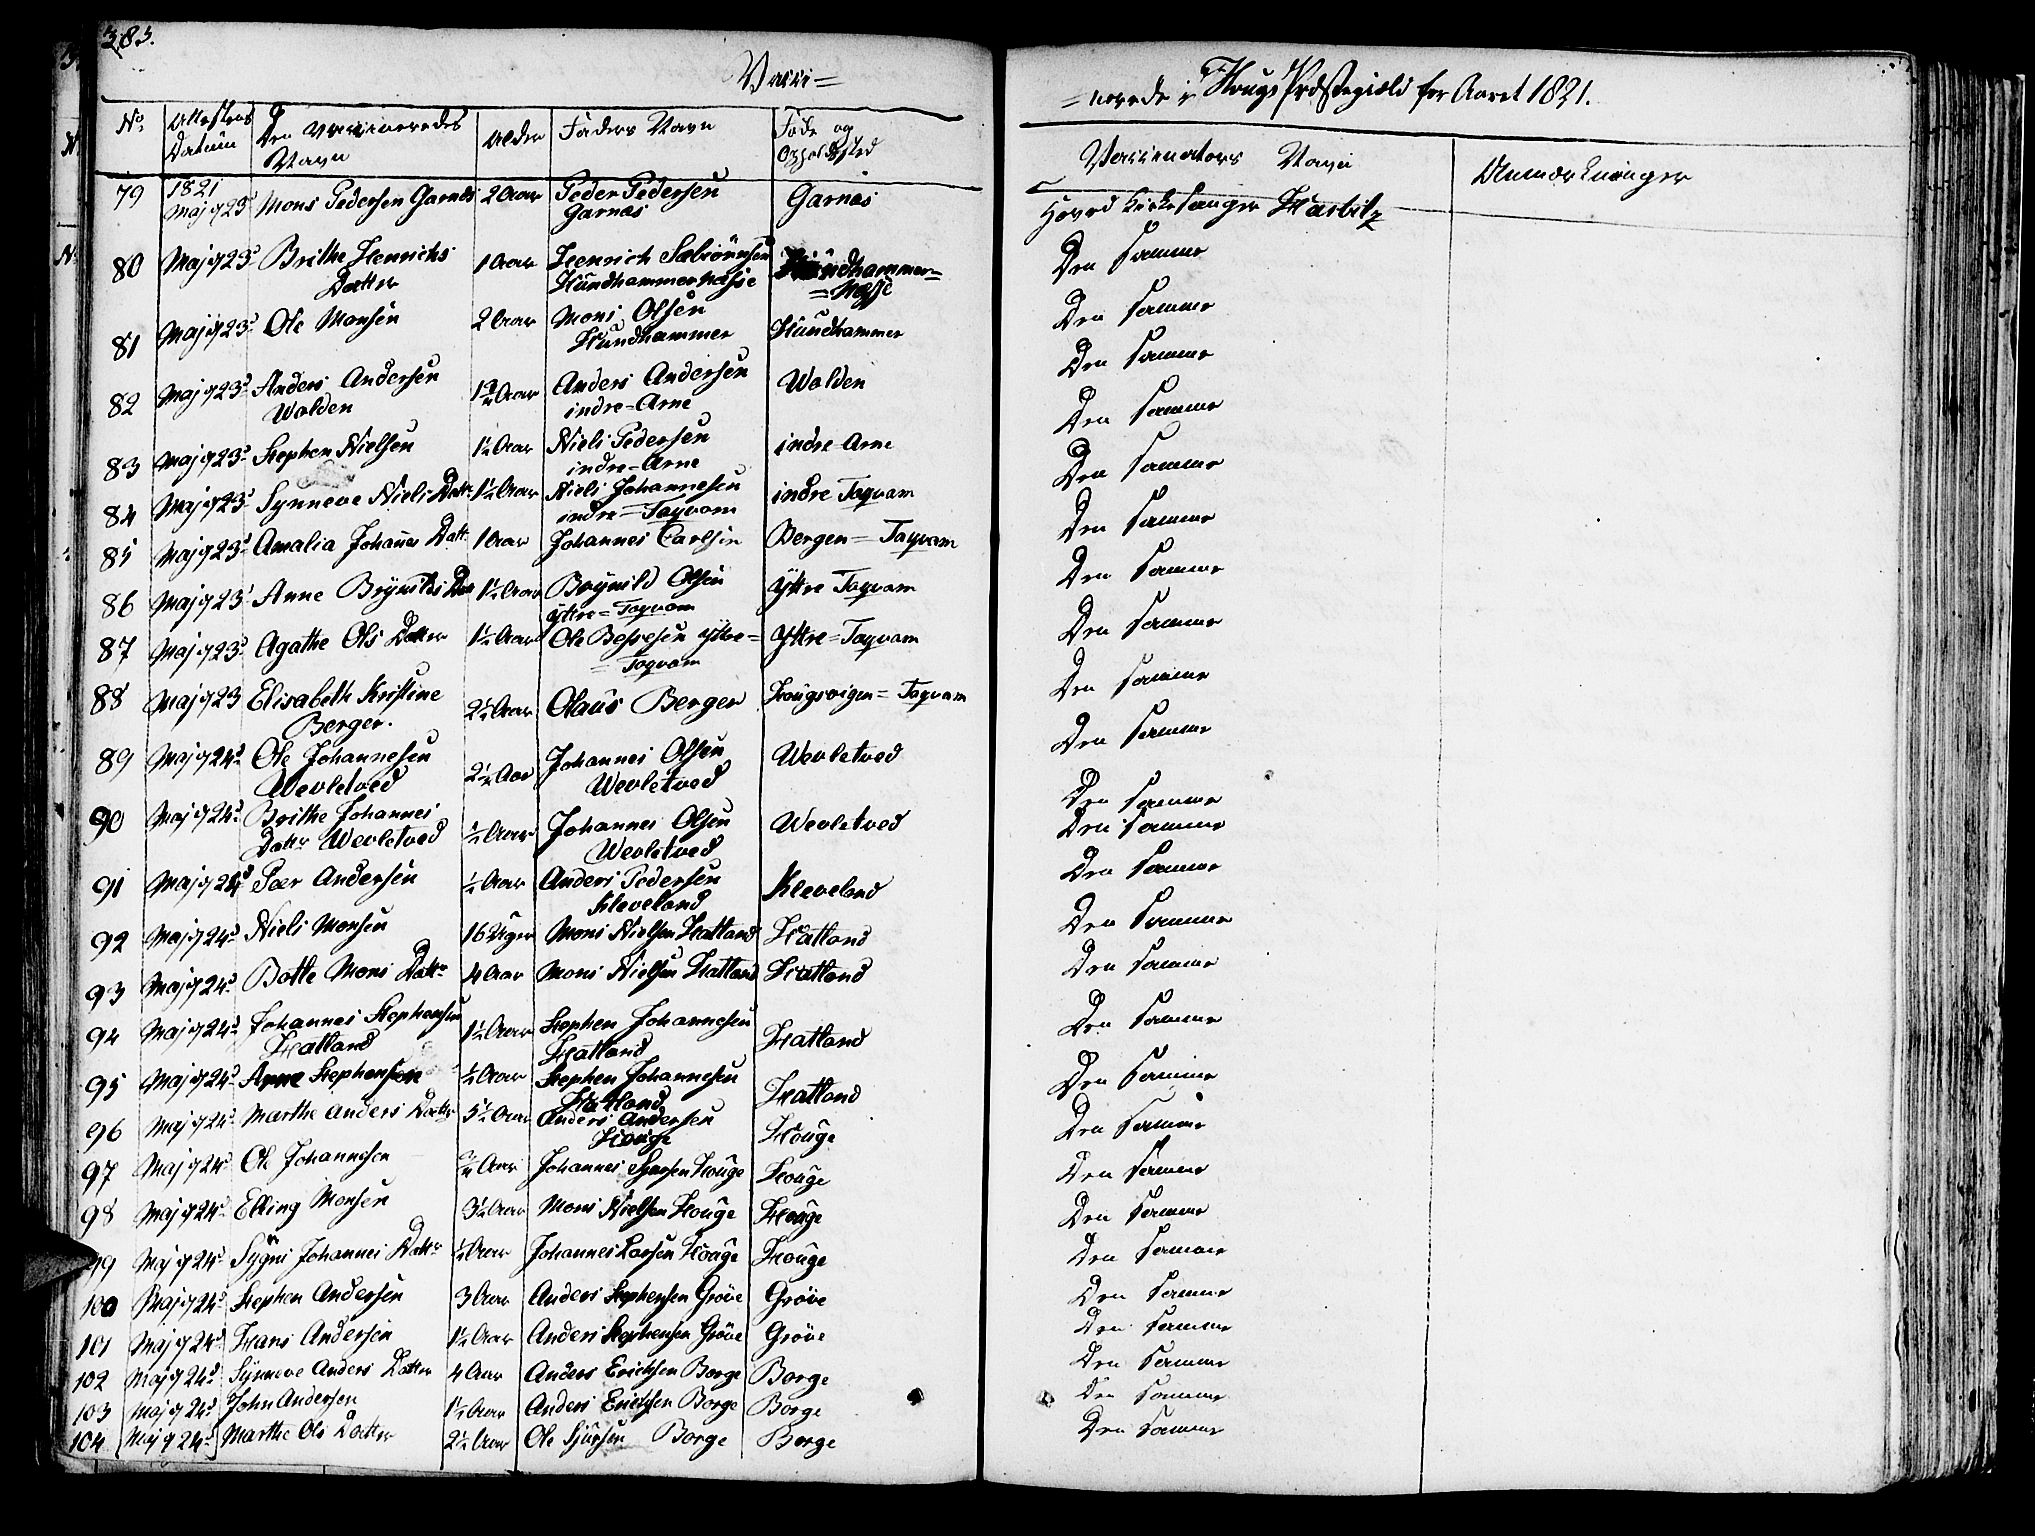 383.
Vacci=
=nerede i Hougs Præstegield for Aaret 1821.
No. Attestens Datum Den Vaccineredes Navn Alder Faders Navn Føde og Opholdsted Vaccinators Navn Anmærkninger
79 1821 Maj 23d Mons Pedersen Garnæs 2 Aar Peder Pedersen Garnæs Garnæs Hoved Kirkesanger
80 Maj 23d Brithe Henrichs Datter 1 Aar Henrich Sæbiörnsen Hundhammernæsse Hundhammer=
=Næsse Den Samme
81 Maj 23d Ole Monsen 2 Aar Mons Olsen Hundhammer Hundhammer Den Samme
82 Maj 23d Anders Andersen Wolden Aar Anders Andersen indre=Arne Wolden Den Samme
83 Maj 23d Stephen Nielsen 1½ Aar Niels Pedersen indre=Arne indre Arne Den Samme
84 Maj 23d Synneve Niels Dattr 1½ Aar Niels Johannesen indre=Taqvam indre Taqvam Den Samme
85 Maj 23d Amalia Johannes Datt 1 Aar Johannes Carlsen Bergen=Taqvam Den Samme
86 Maj 23d Anne Brynilds Datt 1½ Aar Brynild Olsen Yttre=Taqvam Yttre Taqvam Den Samme
87 Maj 23d Agathe Ols Datter 1½ Aar Ole Bessesen Yttre=
=Taqvam Yttre=Taqvam Den Samme
88 Maj 23 Elisabeth Kristine Berger. 2½ Aar Olaus Berger Hougsvigen=Taqvam Den Samme
89 Maj 24d Ole Johannesen Wevletved 2½ Aar Johannes Olsen Wevletved Wevletved Den Samme
90 Maj 24d Brithe Johannes Dattr Wevletved ½ Aar Johannes Olsen Wevletved Wevletved Den Samme
91 Maj 24d Pær Andersen ½ Aar Anders Pedersen Kleveland Kleveland Den Samme
92 Maj 24d Niels Monsen 16 Uger Mons Nielsen Hatland Hatland Den Samme
93 Maj 24d Botle Mons Dattr 4 Aar Mons Nielsen Hatland Hatland Den Samme
94 Maj 24d Johannes Stephensen Hatland 1½ Aar Stephen Johannesen Hatland Hatland Den Samme
95 Maj 24d Arne Stephensen ½ Aar Stephen Johannesen Hatland Hatland Den Samme
96 Maj 24d Marthe Anders Datter 5½ Aar Anders Andersen Houge Houge Den Samme
97 Maj 24d Ole Johannesen Aar Johannes Houge Houge Den Samme
98 Maj 24d Elling Monsen 3½ Aar Mons Nielsen Houge Houge Den Samme
99 Maj 24d Sygni Johannes Dattr ½ Aar Johannes Larsen Houge Houge Den Samme
100 Maj 24d Stephen Andersen 3 Aar Anders Stephensen Gröve Gröve Den Samme
101 Maj 24d Hans Andersen 1½ Aar Anders Stephensen Gröve Gröve Den Samme
102 Maj 24d Synneve Anders Datter 4 Aar Anders Ericksen Borge Borge Den Samme
103 Maj 24d John Andersen 1½ Aar Anders Ericksen Borge Borge Den Samme
104 Maj 24d Marthe Ols Datter 2½ Aar Ole Sjursen Borge Borge Den Samme